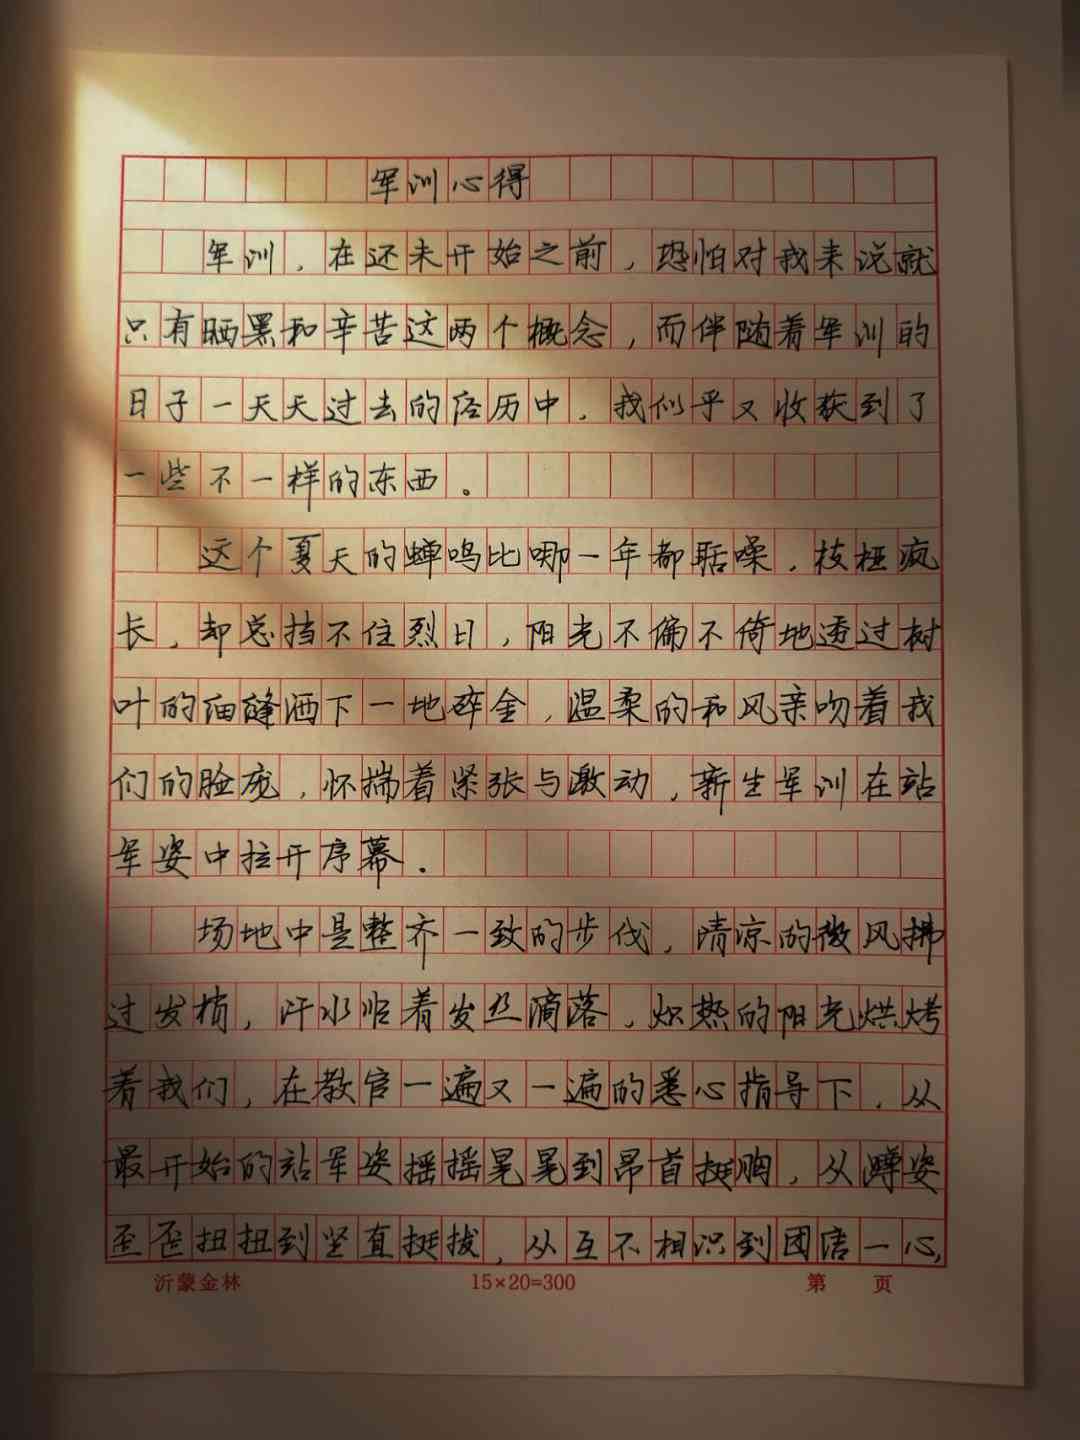 军训心得
军训，在还未开始之前，恐怕对我来说就
只有晒黑和辛苦这两个概念，而伴随着军训的
日子一天天过去的经历中，我似乎又收获到了
一些不一样的东西。
这个夏天的蝉鸣比哪一年都聒噪，枝桠疯
长，却总挡不住烈日，阳光不偏不倚地透过树
叶的缝洒下一地碎金，温柔的和风亲吻着我
们的脸庞，怀揣着紧张与激动，新生军训在站
军姿中拉开序幕．
场地中是整齐一致的步伐，清凉的微风拂
过发梢，汗水临着发丝滴落，炽热的阳光烘烤
着我们，在教官一遍又一遍的悉心指导下，从
最开始的站军姿摇摇晃晃到昂首挺胸，从蹲姿
歪歪扭扭到坚直挺拔，从互不相识到团结一心，
沂蒙金林 15×20=300 第 页